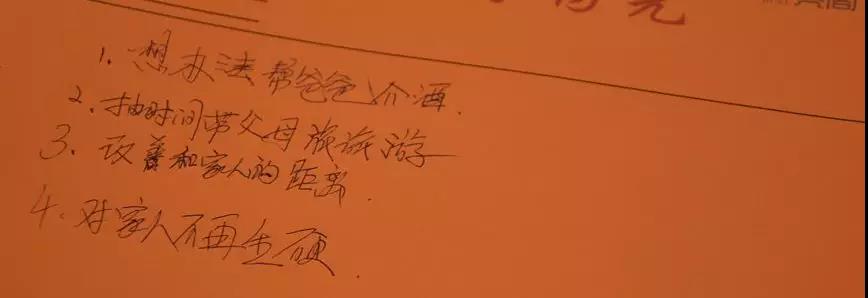 1. 想办法帮爸爸介酒.
2. 抽时间带父母旅旅游
3. 改善和家人的距离.
4. 对家人不再生硬.